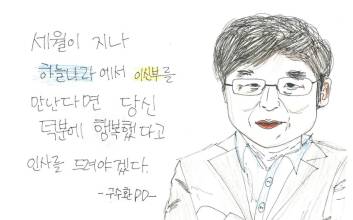 세월이 지나
하늘나라에서 이신부를
만난다면 당신
덕분에 행복했다고
인사를 드려야겠다.
-구수환PD-